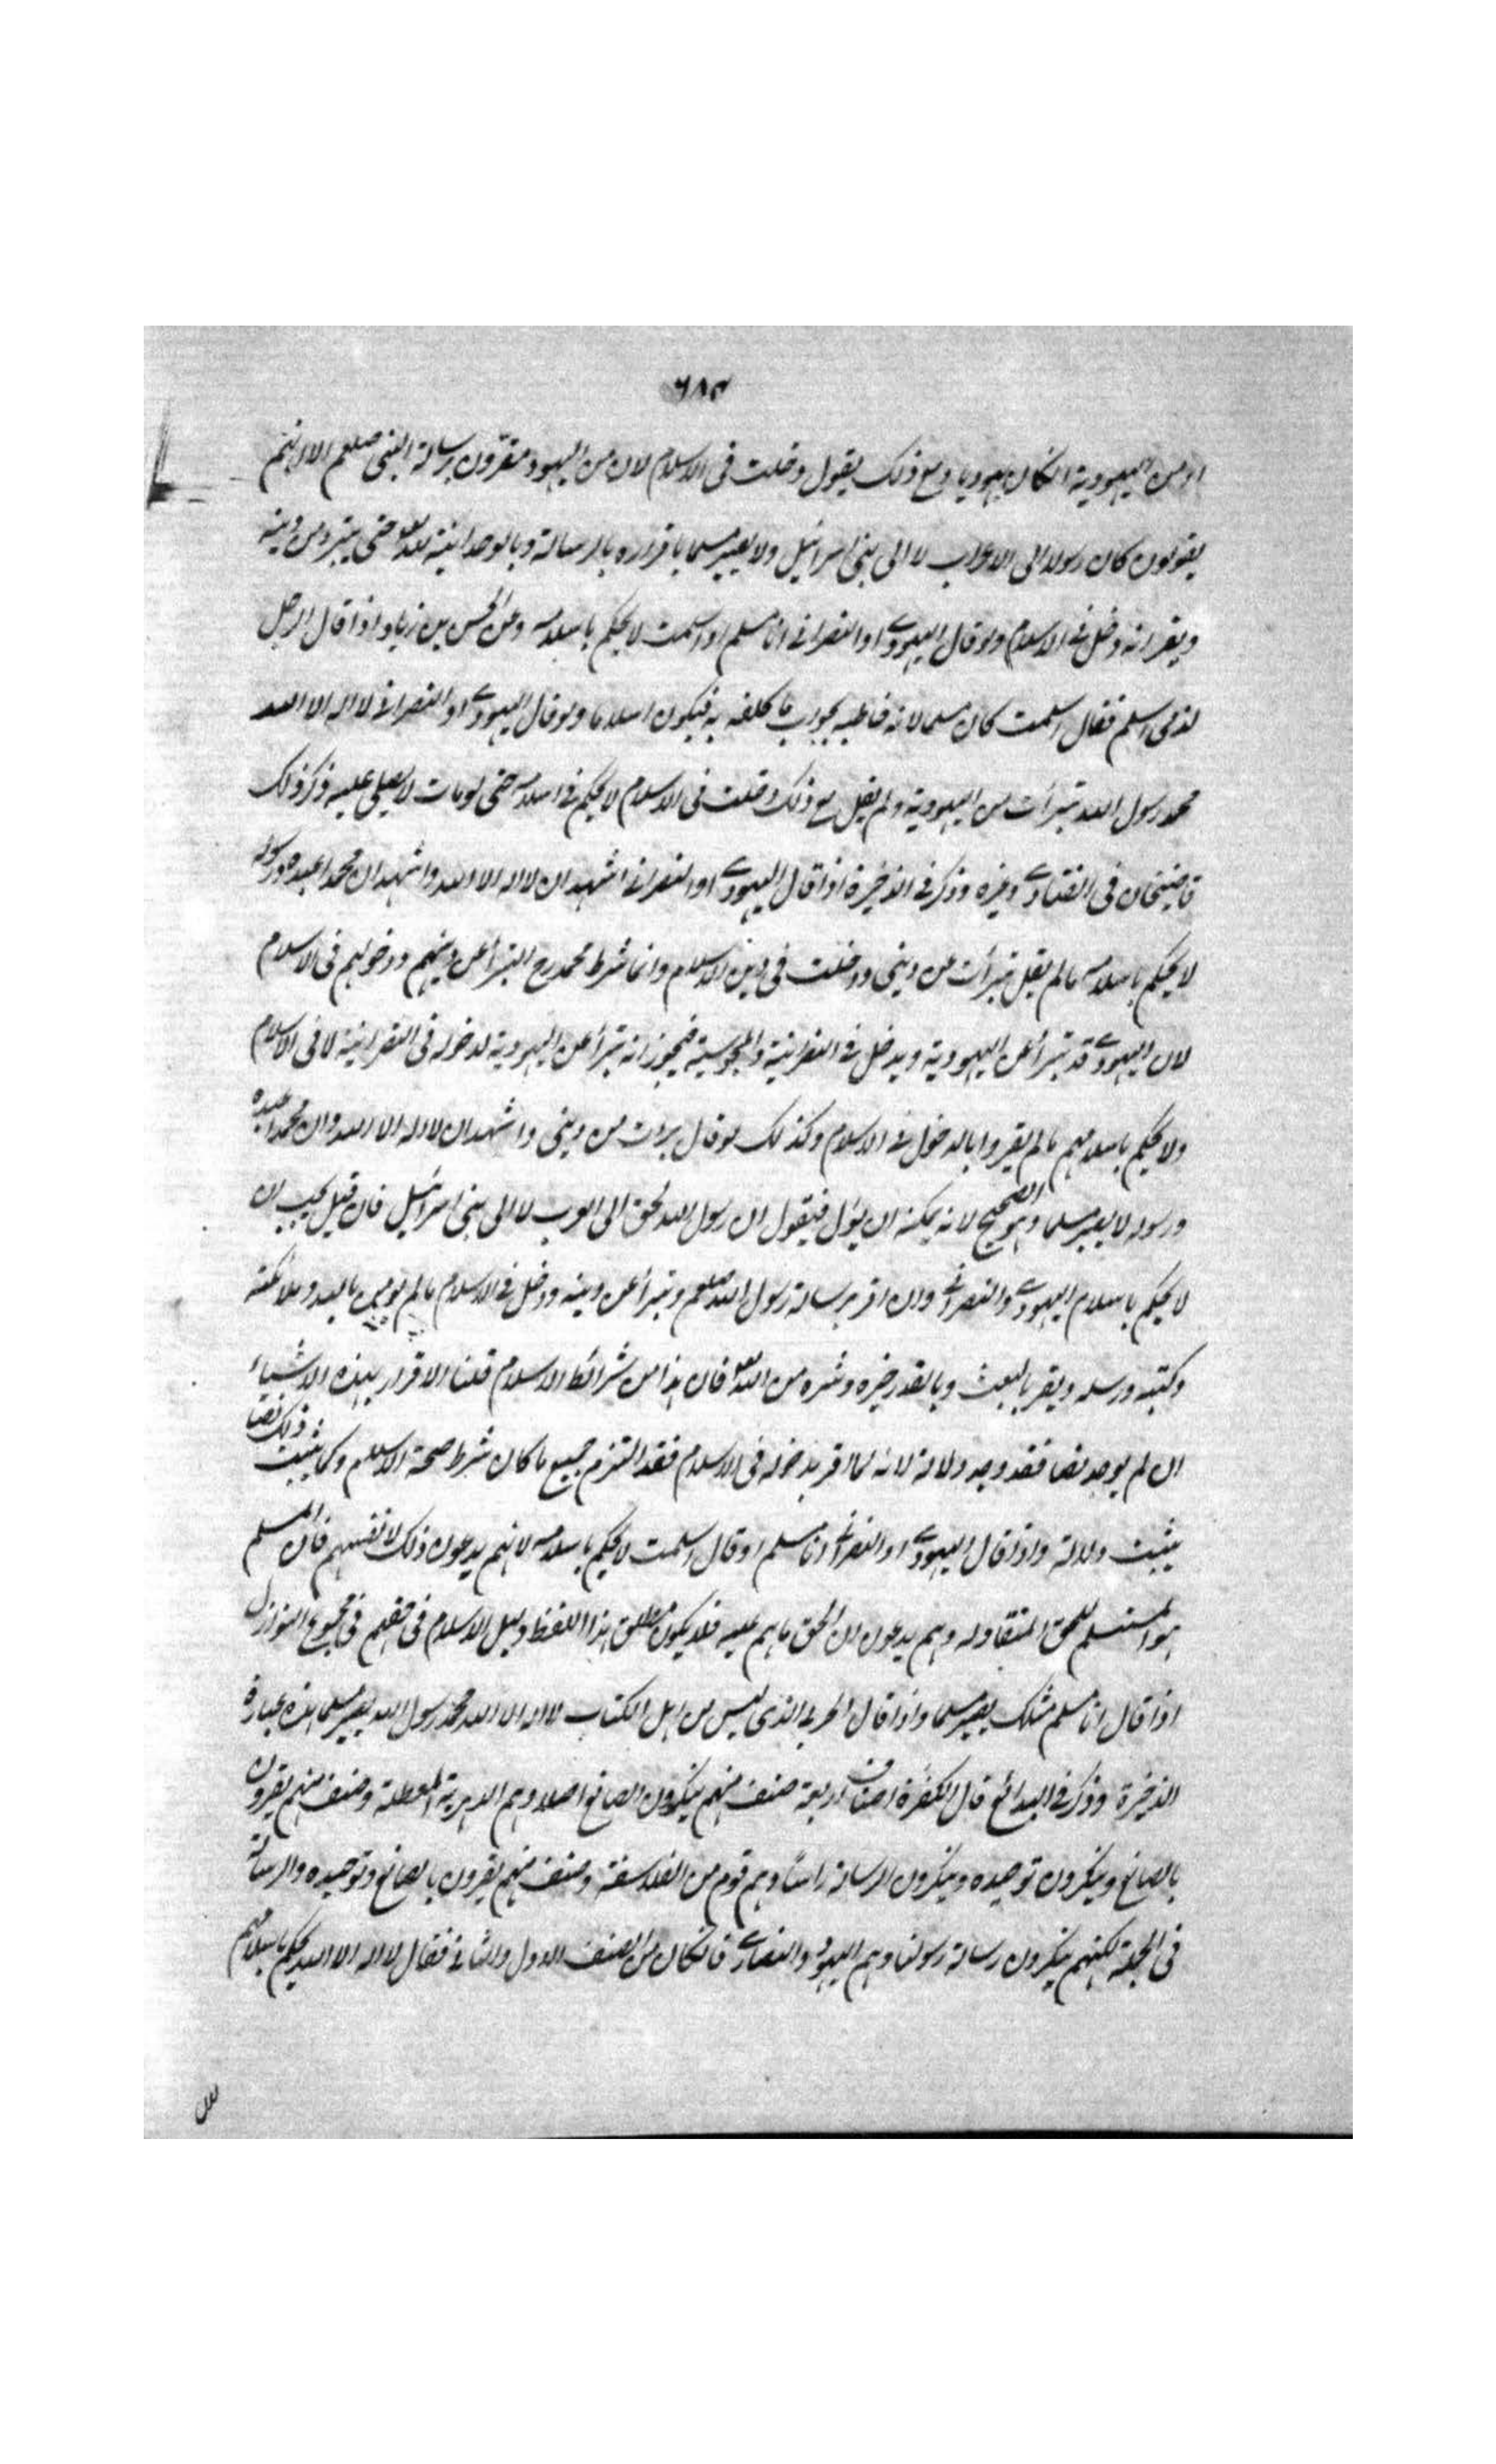 ٦٨٣
او من اليهودية انكان يهوديا ومع ذلك يقول دخلت فى الاسلام لان من اليهود مقرون برسالة النبى صلعم الا انهم
يقولون كان رسولا الى الاعراب لا الى بنى اسرائيل ولا يصير مسلما باقراره بالرسالة وبالوحدانية لله تعا حتى يتبرء من دينه
ويقر انه دخل فى الاسلام ولو قال اليهودى او النصرانى انا مسلم او اسلمت لا يحكم باسلامه وعن الحسن بن زياد اذا قال الرجل
لذمى اسلم فقال اسلمت كان مسلما لانه خاطبه بجواب ما كلفه به فيكون اسلاما ولو قال اليهودى او النصرانى لا اله الا الله
محمد رسول الله تبرأت من اليهودية ولم يقل مع ذلك دخلت فى الاسلام لا يحكم فى اسلامه حتى لو مات لا يصلى عليه وذكر ذلك
قاضيخان فى الفتاوى وغيره وذكر فى الذخيرة اذا قال اليهودى او النصرانى اشهد ان لا اله الا الله واشهد ان محمدا عبده ورسوله
لا يحكم باسلامه ما لم يقل تبرأت من دينى ودخلت فى دين الاسلام وانما شرط محمد رح التبرأ عن دينهم ودخولهم فى الاسلام
لان اليهودى قد تبرأ عن اليهودية ويدخل فى النصرانية والمجوسية فيجوز انه تبرأ عن اليهودية لدخوله فى النصرانية لا فى الاسلام
ولا يحكم باسلامهم ما لم يقروا بالدخول فى الاسلام وكذلك لو قال برءت من دينى واشهد ان لا اله الا الله وان محمدا عبده
ورسوله لا يصير مسلما وهو الصحيح لانه يمكنه ان يؤل فيقول ان رسول الله بحق الى العرب لا الى بنى اسرائيل فان قيل يجب ان
لا يحكم باسلام اليهودى والنصرانى وان اقر برسالة رسول الله صلعم وتبرأ عن دينه ودخل فى الاسلام ما لم يومن بالله وملائكته
وكتبه ورسله ويقر بالبعث وبالقدر خيره وشره من الله تعا فان هذا من شرائط الاسلام قلنا الاقرار بهذه الاشياء
ان لم يوجد نصا فقد وجد دلالة لانه لما اقر بدخوله فى الاسلام فقد التزم جميع ما كان شرط صحة الاسلام وكما يثبت ذلك نصا
يثبت دلالة واذا قال اليهودى او النصرانى انا مسلم او قال اسلمت لا يحكم باسلامه لانهم يدعون ذلك لانفسهم فان المسلم
هو المستسلم للحق المنقاد له وهم يدعون ان الحق ما هم عليه فلا يكون مطلق هذا اللفظ دليل الاسلام فى حقهم فى مجموع النوازل
اذا قال انا مسلم مثلك يصير مسلما واذا قال الحربى الذى ليس من اهل الكتاب لا اله الا الله محمد رسول الله يصير مسلما هذه عبارة
الذخيرة وذكر فى البدائع قال الكفرة اصناف اربعة صنف منهم ينكرون الصانع اصلا وهم الدهرية المعطلة وصنف منهم يقرون
بالصانع وينكرون توحيده وينكرون الرسالة راسا وهم قوم من الفلاسفة وصنف منهم يقرون بالصانع وتوحيده والرسالة
فى الجملة لكنهم ينكرون رسالة رسولنا وهم اليهود والنصارى فانكان من الصنف الاول والثانى فقال لا اله الا الله يحكم باسلامهم